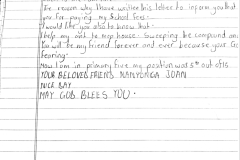 The reason why I have written this letter to inform you that
you for paying my School fees.
I would like you also to know that.
I help my aunt to keep house. Sweeping the compound and
You will be my friend forever and ever because your Go
Fearing.
Now I am in primary five my position was 5th out of 15
YOUR BELOVED FRIEND NANYONGA JOAN
NICE DAY
MAY GOD BLEES YOU.